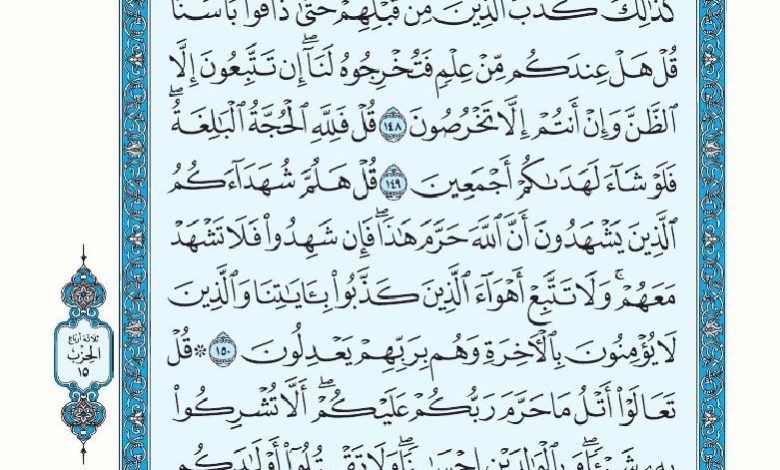 كَذَٰلِكَ كَذَّبَ ٱلَّذِينَ مِن قَبْلِهِمْ حَتَّىٰ ذَاقُوا۟ بَأْسَنَا
قُلْ هَلْ عِندَكُم مِّنْ عِلْمٍ فَتُخْرِجُوهُ لَنَآ ۖ إِن تَتَّبِعُونَ إِلَّا
ٱلظَّنَّ وَإِنْ أَنتُمْ إِلَّا تَخْرُصُونَ ١٤٨ قُلْ فَلِلَّهِ ٱلْحُجَّةُ ٱلْبَٰلِغَةُ ۖ
فَلَوْ شَآءَ لَهَدَىٰكُمْ أَجْمَعِينَ ١٤٩ قُلْ هَلُمَّ شُهَدَآءَكُمُ
ٱلَّذِينَ يَشْهَدُونَ أَنَّ ٱللَّهَ حَرَّمَ هَٰذَا ۖ فَإِن شَهِدُوا۟ فَلَا تَشْهَدْ
مَعَهُمْ ۚ وَلَا تَتَّبِعْ أَهْوَآءَ ٱلَّذِينَ كَذَّبُوا۟ بِـَٔايَٰتِنَا وَٱلَّذِينَ
لَا يُؤْمِنُونَ بِٱلْـَٔاخِرَةِ وَهُم بِرَبِّهِمْ يَعْدِلُونَ ١٥٠ ۞ قُلْ
تَعَالَوْا۟ أَتْلُ مَا حَرَّمَ رَبُّكُمْ عَلَيْكُمْ ۖ أَلَّا تُشْرِكُوا۟
بِهِۦ شَيْـًٔا ۖ وَبِٱلْوَٰلِدَيْنِ إِحْسَٰنًا ۖ وَلَا تَقْتُلُوٓا۟ أَوْلَٰدَكُم
ثلاثة أرباع
الحزب
١٥